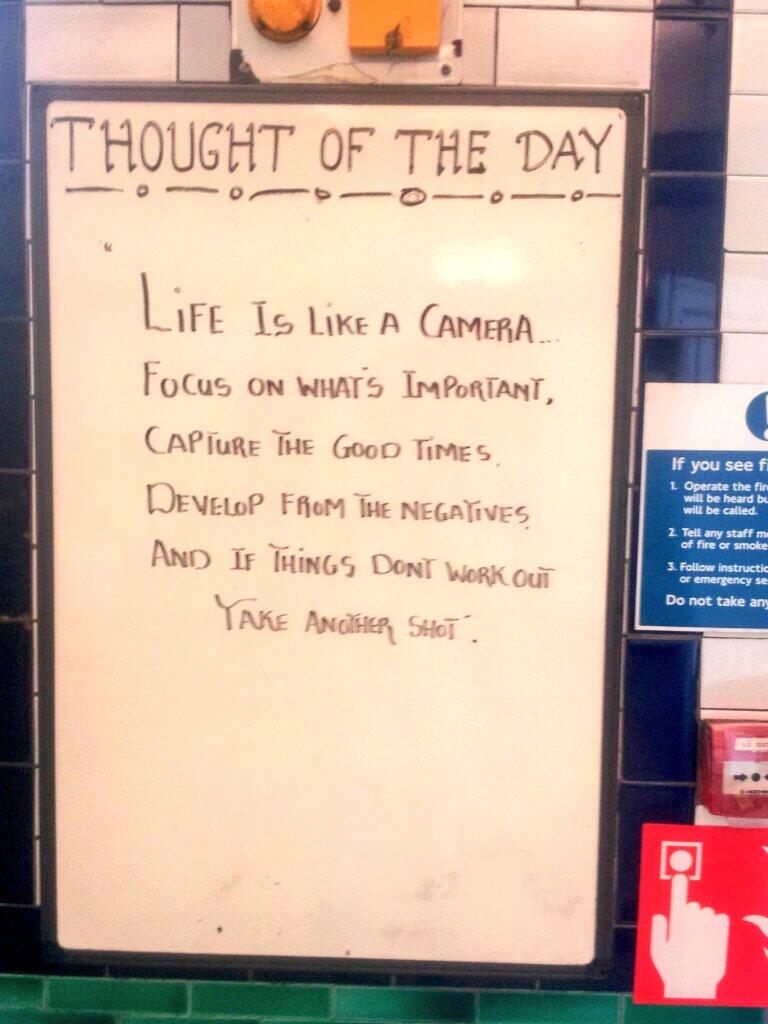 THOUGHT OF THE DAY
"
LIFE IS LIKE A CAMERA...
FOCUS ON WHAT'S IMPORTANT,
CAPTURE THE GOOD TIMES,
DEVELOP FROM THE NEGATIVES
AND IF THINGS DONT WORK OUT
TAKE ANOTHER SHOT".
If you see fi
1. Operate the fire
will be heard bu
will be called.
2. Tell any staff me
of fire or smoke
3. Follow instructio
or emergency se
Do not take any